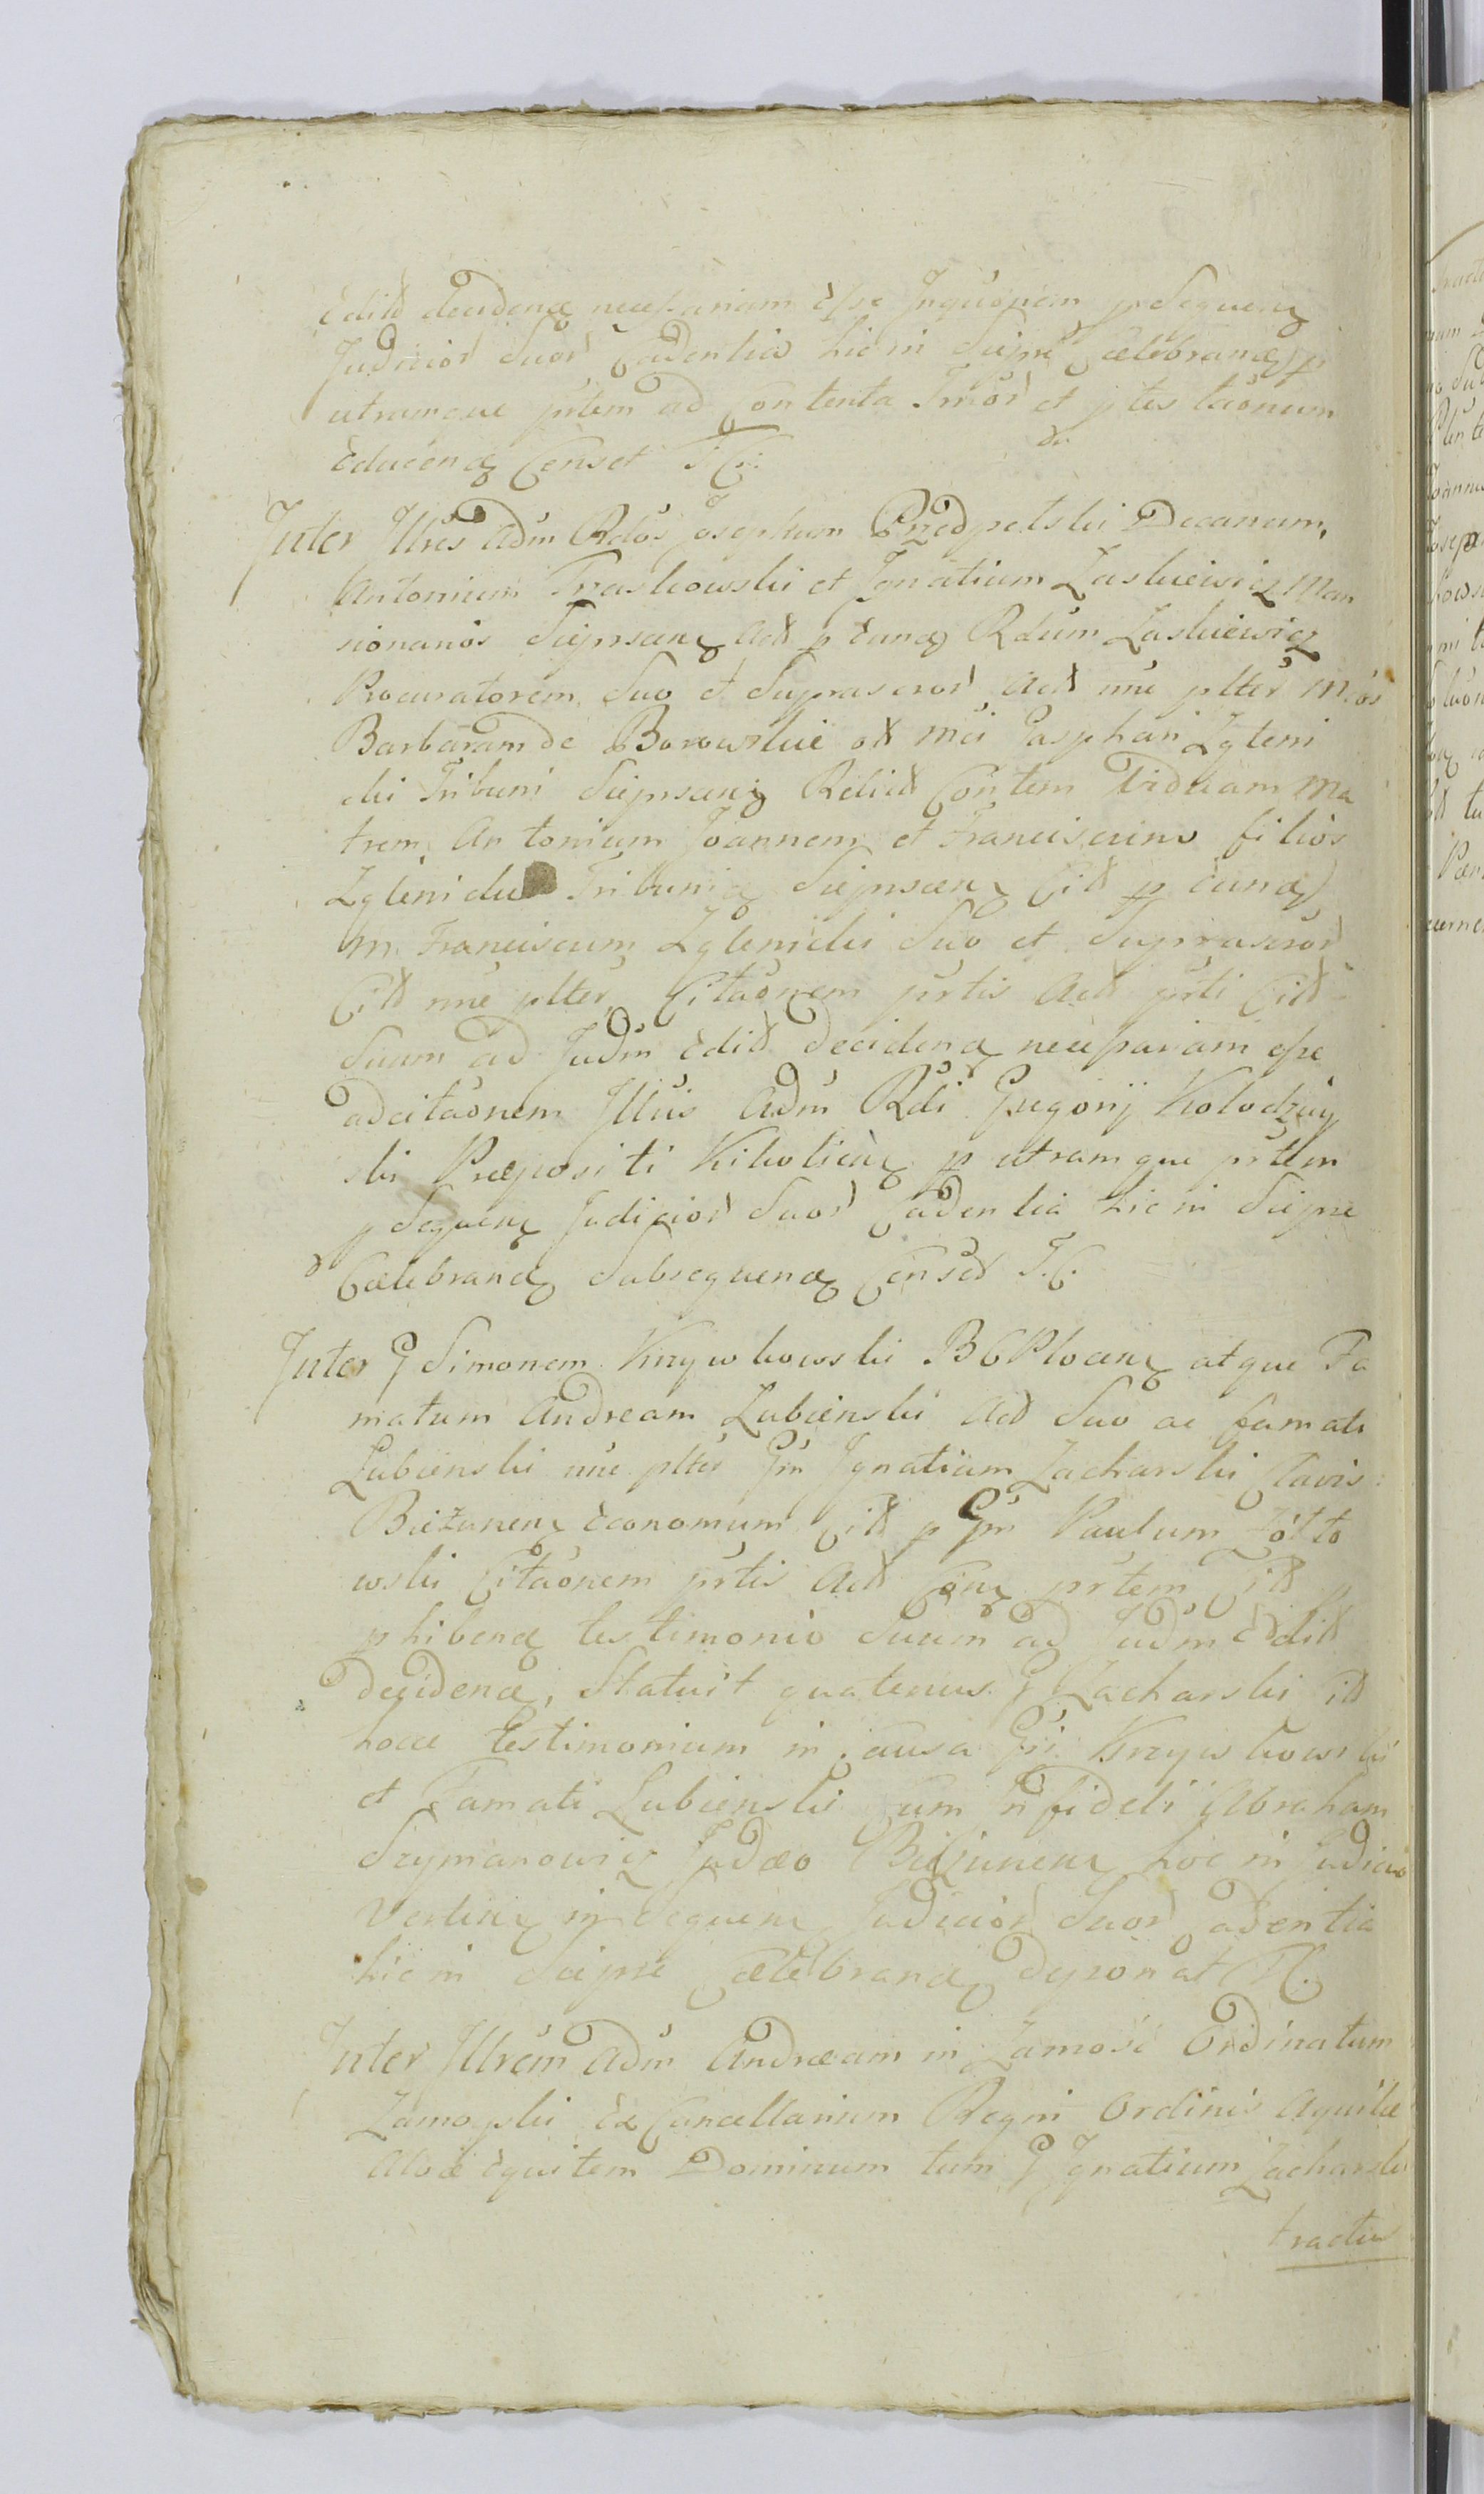 Edit decidend necessariam esse Inquõnem p Sequen
Judicior Suor Cadentia hic in Sieprc Celebrand p
utramque prtem ad Contenta Trmor et ptestaõnum
Educend Censet T.C.
Inter Illres Adm Rdos Josephum Przedpelski Decanum,
Antonium Traskowski et Ignatium Laskiewicz Man
sionarios Sieprscen Act p eund Rdum Laskiewicz
Procuratorem Suo et Suprascror Act nne plter M. os
Barbaram de Borowskie olt Mci Casphari Zgleni
cki Tribuni Sieprscen Relict Contem Viduam Ma
trem, Antonium Joannem et Franciscum filios
Zglenickie Tribunid Sieprscen Citt p eund
M. Franciscum Zglenicki Suo et Suprascror
Citt nne plter Citaõnem prtis Act prti Citt
Suum ad Judm Edit Decidend necessariam esse
adcitaõnem Illris Adm Rdi Gregorij Kolodziey
ski Præpositi Kikolien p utramque prtem
p Sequen Judicior Suor Cadentia hic in Siepre
Celebrand Subsequend Censet T.C.
Inter G Simonem Krzywkowski B C Plocen atque Fa
matum Andream Lubienski Act Suo ac famati
Lubienski nne plter Gm Ignatium Zacharski Clavis
Bieżunen Economum Citt p Gm Paulum Żółto
wski Citaõnem prtis Act Con prtem Citt p
phibend testimonio Suum ad Judm Edit
Decidend, Statuit quatenus G Zacharski Citt
hocce testimonium in causa Gri Krzywkowski
et Famati Lubienski cum Infideli Abraham
Szymanowicz Judæo Bieżunen hoc in Judicio
Verten in Sequen Judicior Suor Cadentia
hic in Siepre Celebrand Deponat T.C.
Inter Illrem Adm Andream in Zamość Ordinatum
Zamoyski Ex Cancellarium Regni Ordinis Aquilæ
Albæ Equitem Dominum tum G Ignatium Zacharski
tractus